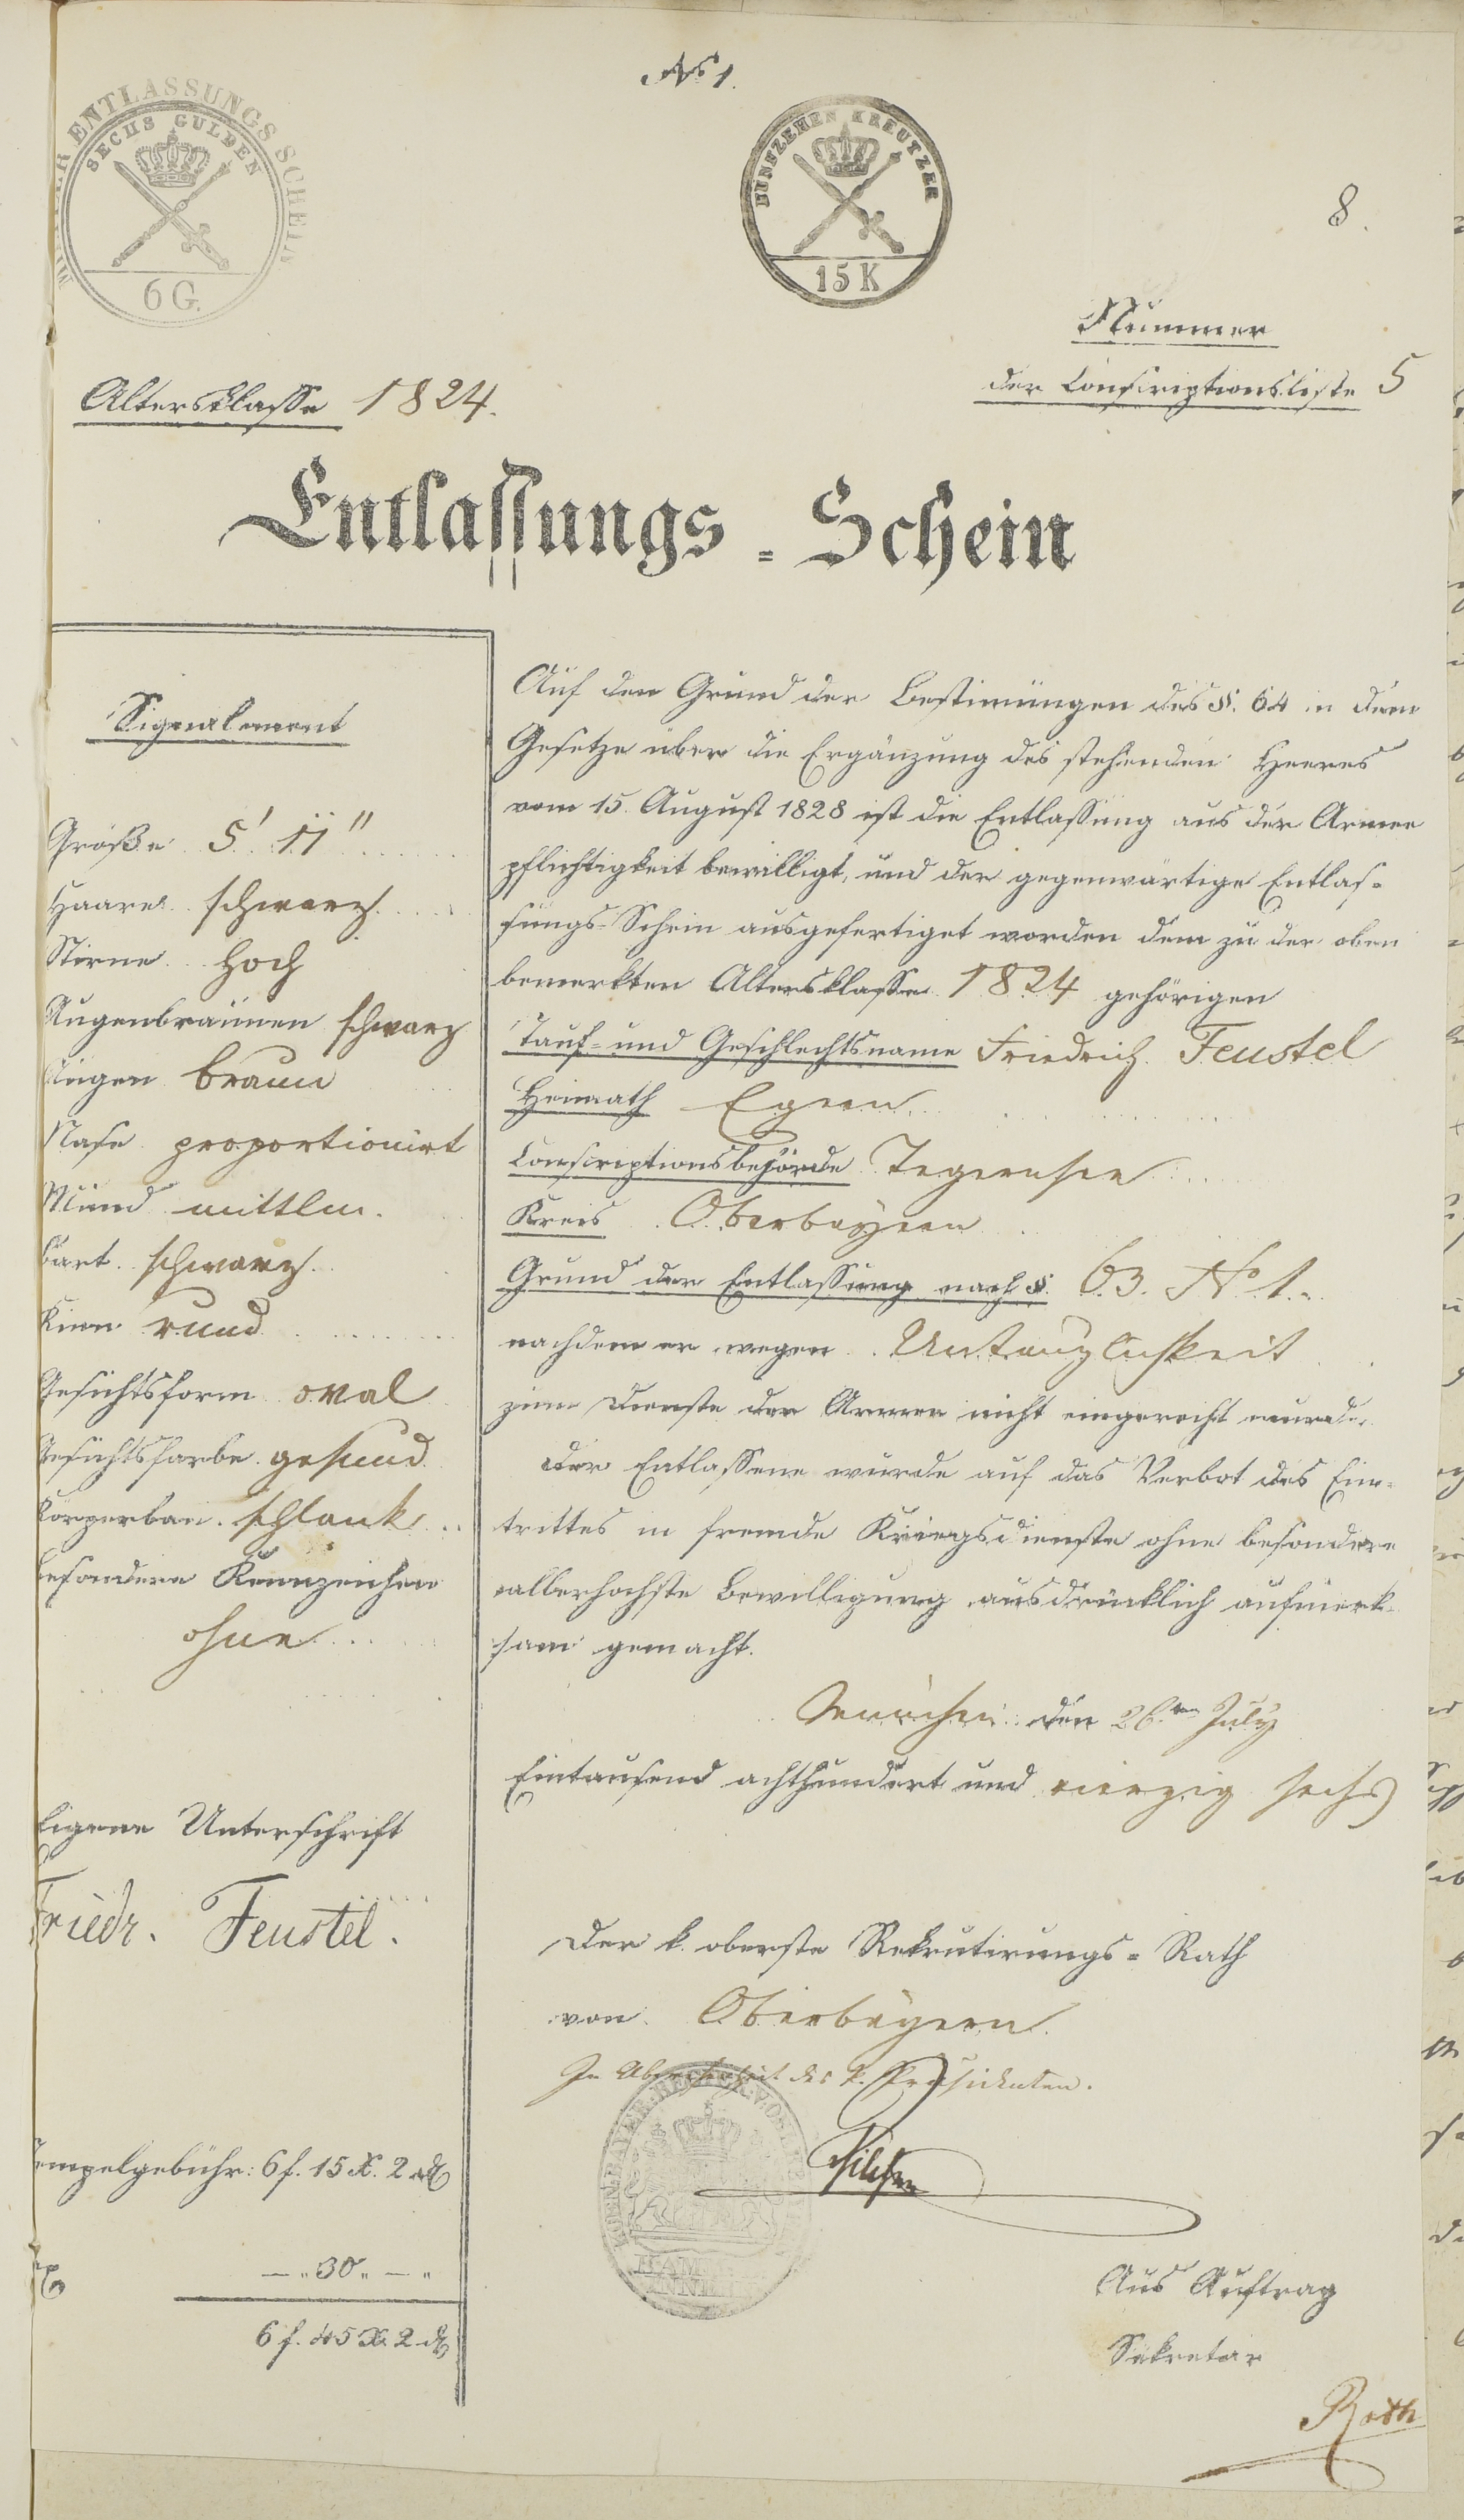 No 1.
ENTLASSUNGS SCHEIN
SECHS GULDEN
6 G.
FÜNFZEHEN KREUTZER
15 K
8.
Nummer
der Conscriptionsliste 5
Altersklasse 1824.
Entlassungs-Schein
Signalement
Größe 5' 11"
Haare schwarz.
Stirne hoch
Augenbraunen schwarz
Augen braun
Nase proportionirt
Mund mittler.
Bart schwarz.
Kinn rund
Gesichtsform oval
Gesichtsfarbe gesund
Körperbau schlank
besondere Kennzeichen
ohne
Eigene Unterschrift
Friedr. Feustel.
Stempelgebühr: 6 f. 15 X. 2 ₰
— „ 30 „ — „
6 f. 45 X. 2 ₰
Auf den Grund der Bestimungen des §. 64 in dem
Gesetze über die Ergänzung des stehenden Heeres
vom 15. August 1828 ist die Entlassung aus der Armee
pflichtigkeit bewilligt, und der gegenwärtige Entlas-
sungs-Schein ausgefertiget worden dem zu der oben
bemerkten Altersklasse 1824 gehörigen
Tauf- und Geschlechtsname Friedrich Feustel
Heimath Egern
Conscriptionsbehörde Tegernsee
Kreis Oberbayern
Grund der Entlassung nach §. 63. No 1.
nachdem er wegen Untauglichkeit
zum Dienste der Armee nicht eingereiht wurde.
Der Entlassene wurde auf das Verbot des Ein-
trittes in fremde Kriegsdienste ohne besondere
allerhöchste Bewilligung ausdrücklich aufmerk-
sam gemacht.
München den 26.ten July
Eintausend achthundert und vierzig sechs
Der k. oberste Rekrutirungs-Rath
von Oberbayern.
In Abwesenheit des k. Präsidenten.
Aus Auftrag
Sekretär
Roth